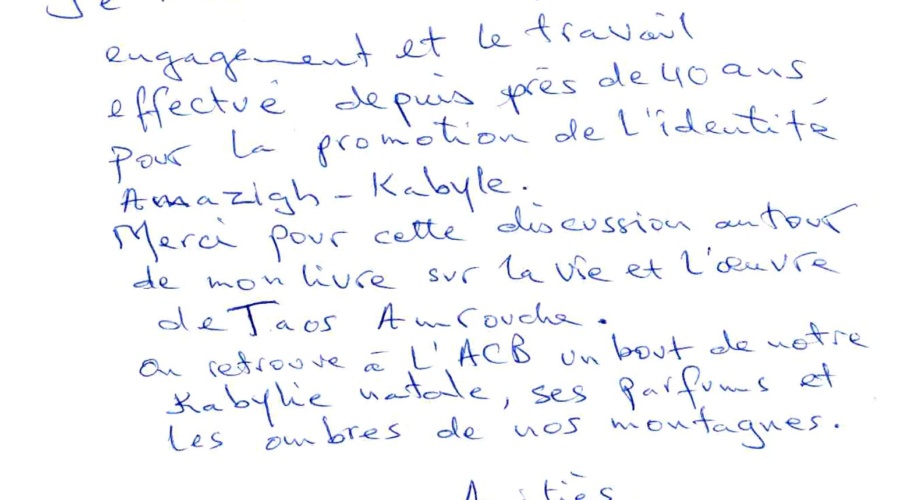 Je
engagement et le travail
effectué depuis près de 40 ans
pour la promotion de l'identité
Amazigh - Kabyle.
Merci pour cette discussion autour
de mon livre sur la vie et l'œuvre
de Taos Amrouche.
On retrouve à L'ACB un bout de notre
Kabylie natale, ses parfums et
les ombres de nos montagnes.